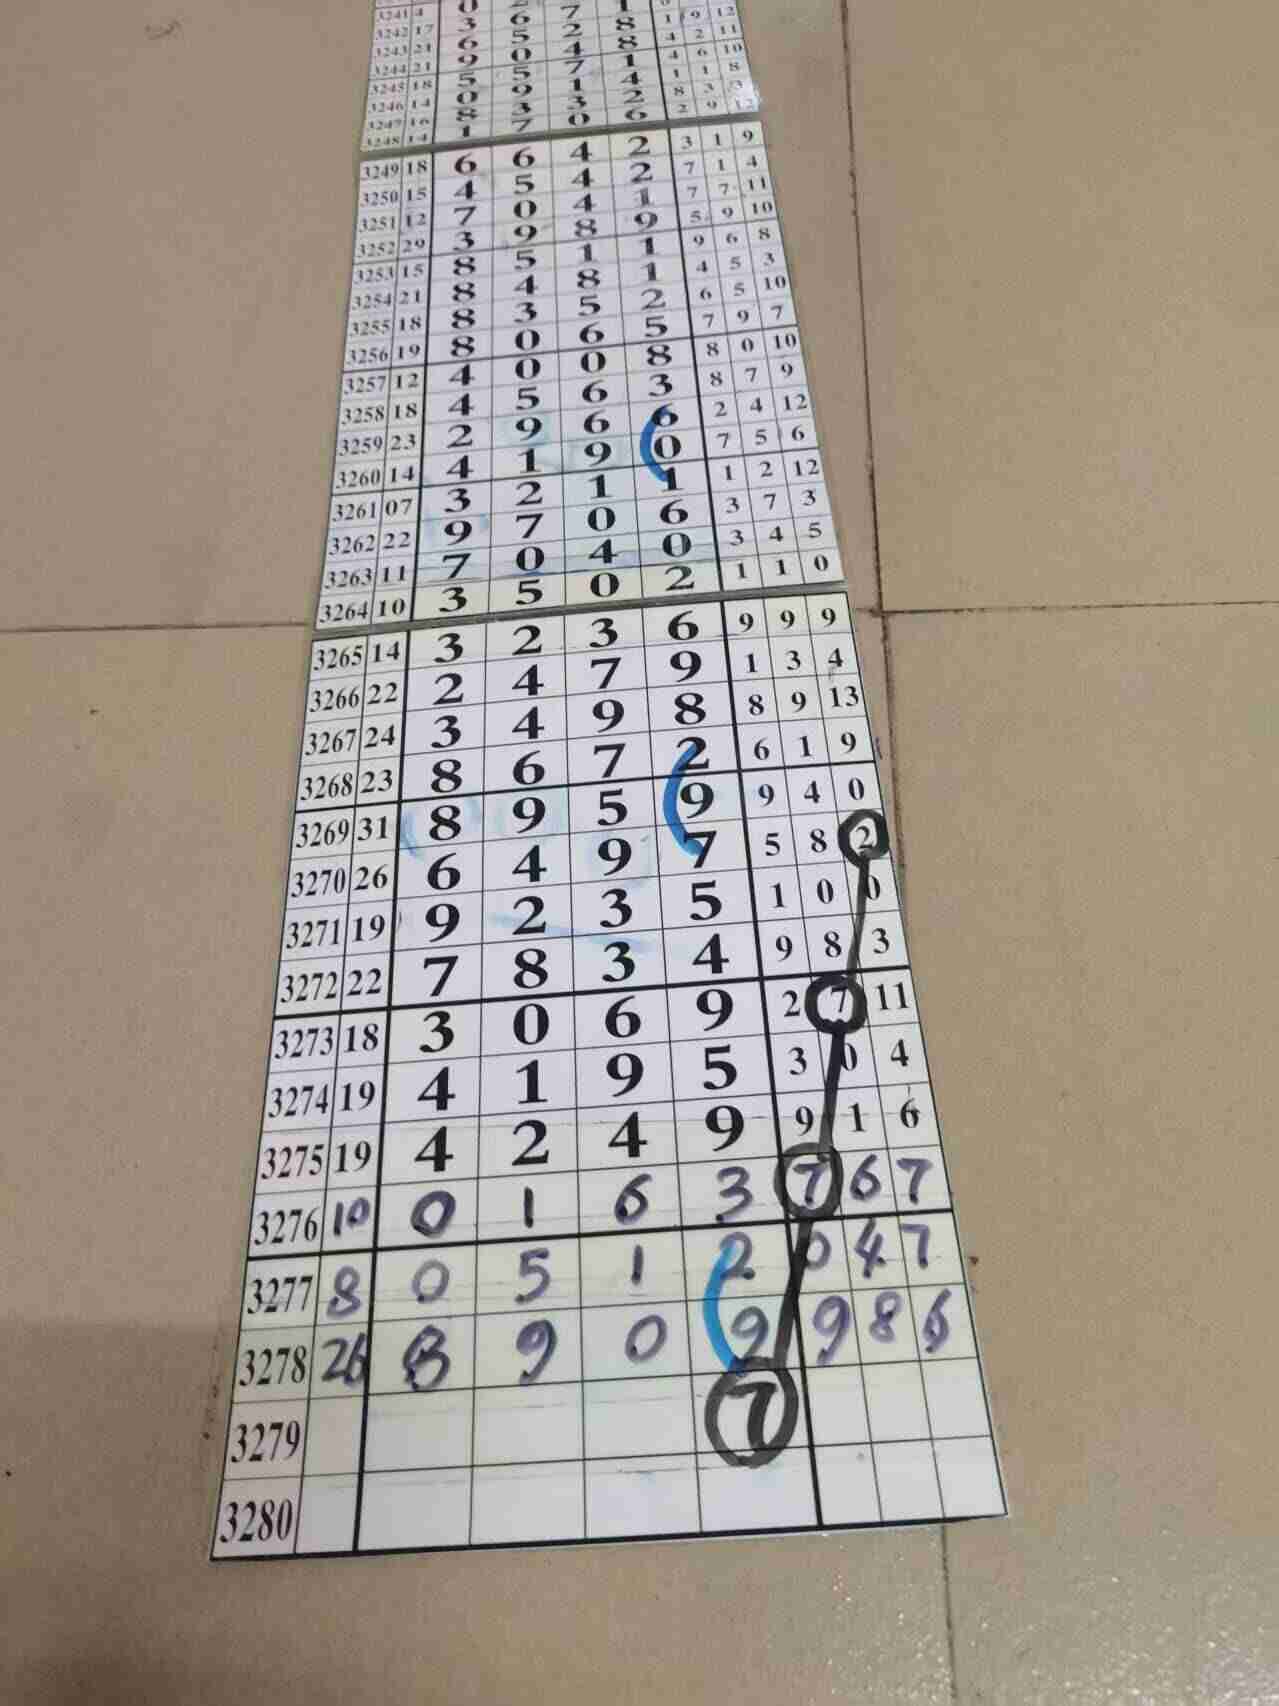 3241 4 0 7 1
3242 17 3 6 2 8 1 9 12
3243 21 6 5 4 8 4 2 11
3244 21 9 0 7 1 4 6 10
3245 18 5 5 1 4 1 1 8
3246 14 0 9 3 2 8 3 3
3247 16 8 3 0 6 2 9 12
3248 14 1 7
3249 18 6 6 4 2 3 1 9
3250 15 4 5 4 2 7 1 4
3251 12 7 0 4 1 7 7 11
3252 29 3 9 8 9 5 9 10
3253 15 8 5 1 1 9 6 8
3254 21 8 4 8 1 4 5 3
3255 18 8 3 5 2 6 5 10
3256 19 8 0 6 5 7 9 7
3257 12 4 0 0 8 8 0 10
3258 18 4 5 6 3 8 7 9
3259 23 2 9 6 6 2 4 12
3260 14 4 1 9 0 7 5 6
3261 07 3 2 1 1 1 2 12
3262 22 9 7 0 6 3 7 3
3263 11 7 0 4 0 3 4 5
3264 10 3 5 0 2 1 1 0
3265 14 3 2 3 6 9 9 9
3266 22 2 4 7 9 1 3 4
3267 24 3 4 9 8 8 9 13
3268 23 8 6 7 2 6 1 9
3269 31 8 9 5 9 9 4 0
3270 26 6 4 9 7 5 8 2
3271 19 9 2 3 5 1 0 0
3272 22 7 8 3 4 9 8 3
3273 18 3 0 6 9 2 7 11
3274 19 4 1 9 5 3 0 4
3275 19 4 2 4 9 9 1 6
3276 10 0 1 6 3 7 6 7
3277 8 0 5 1 2 0 4 7
3278 26 8 9 0 9 9 8 6
3279 7
3280